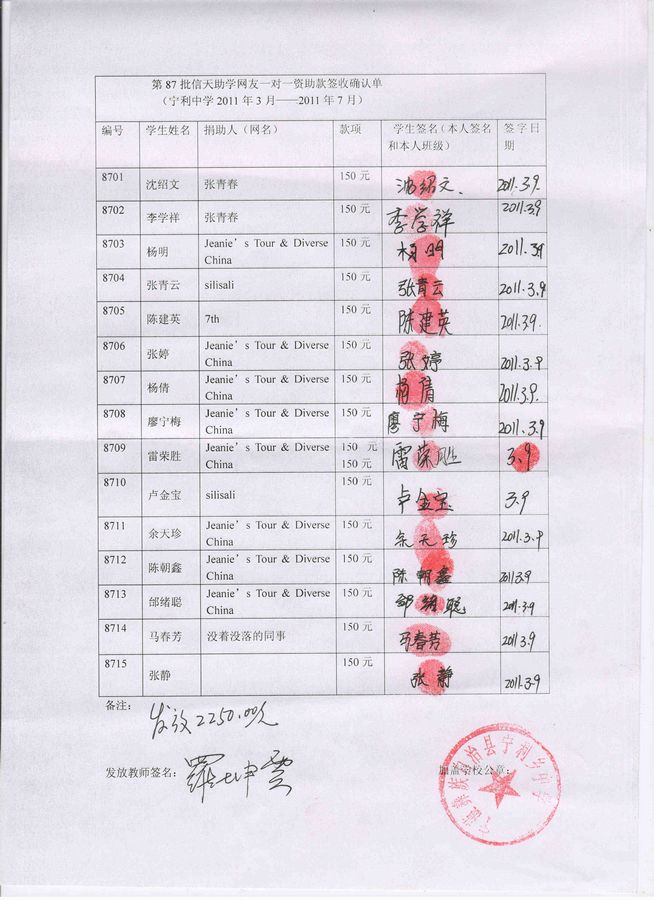 第 87 批信天助学网友一对一资助款签收确认单
（宁利中学 2011 年 3 月——2011 年 7 月）
编号 学生姓名 捐助人（网名） 款项 学生签名（本人签名 签字日
和本人班级） 期
8701 沈绍文 张青春 150 元 沈绍文. 2011.3.9.
8702 李学祥 张青春 150 元 李学祥 2011.3.9
8703 杨明 Jeanie's Tour & Diverse 150 元 杨明 2011.3.9
China
8704 张青云 silisali 150 元 张青云 2011.3.9
8705 陈建英 7th 150 元 陈建英 2011.3.9.
8706 张婷 Jeanie's Tour & Diverse 150 元 张婷 2011.3.9
China
8707 杨倩 Jeanie's Tour & Diverse 150 元 杨倩 2011.3.9.
China
8708 廖宁梅 Jeanie's Tour & Diverse 150 元 廖宁梅 2011.3.9
China
8709 雷荣胜 Jeanie's Tour & Diverse 150 元 雷荣胜 3.9
China 150 元
8710 卢金宝 silisali 150 元 卢金宝 3.9
8711 余天珍 Jeanie's Tour & Diverse 150 元 余天珍 2011.3.9
China
8712 陈朝鑫 Jeanie's Tour & Diverse 150 元 陈朝鑫 2011.3.9
China
8713 邰绪聪 Jeanie's Tour & Diverse 150 元 邰绪聪 2011.3.9
China
8714 马春芳 没着没落的同事 150 元 马春芳 2011.3.9
8715 张静 150 元 张静 2011.3.9
备注：
发放2250.00元
发放教师签名： 加盖学校公章：